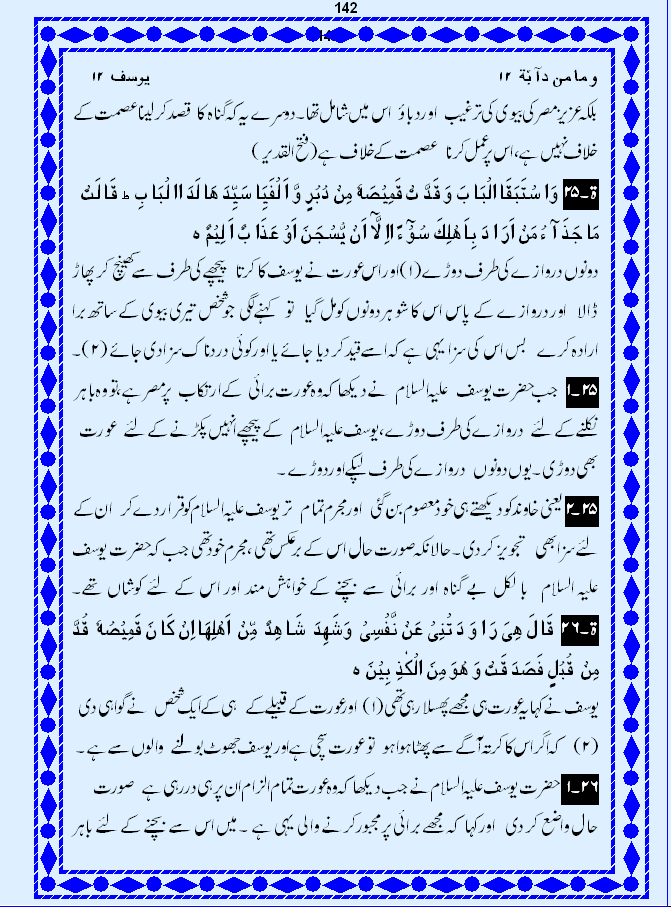 142
وما من دآبّة ۱۲ یوسف ۱۲
بلکہ عزیز مصر کی بیوی کی ترغیب اور دباؤ اس میں شامل تھا۔ دوسرے یہ کہ گناہ کا قصد کر لینا عصمت کے
خلاف نہیں ہے، اس پر عمل کرنا عصمت کے خلاف ہے (فتح القدیر)
ۃ۔۲۵ وَا سْتَبَقَا الْبَا بَ وَ قَدَّ تْ قَمِیْصَہٗ مِنْ دُبُرٍ وَّ اَ لْفَیَا سَیِّدَ ھَا لَدَ ا الْبَا بِ ط قَا لَتْ
مَا جَذَ آ ءُ مَنْ اَرَا دَ بِاَ ھْلِكَ سُوْٓ ءً ا اِلَّآ اَنْ یُّسْجَنَ اَوْ عَذَا بٌ اَ لِیْمٌ ہ
دونوں دروازے کی طرف دوڑے (۱) اور اس عورت نے یوسف کا کرتا پیچھے کی طرف سے کھینچ کر پھاڑ
ڈالا اور دروازے کے پاس اس کا شوہر دونوں کو مل گیا تو کہنے لگی جو شخص تیری بیوی کے ساتھ برا
ارادہ کرے بس اس کی سزا یہی ہے کہ اسے قید کر دیا جائے یا اور کوئی دردناک سزا دی جائے (۲)۔
۲۵۔۱ جب حضرت یوسف علیہ السلام نے دیکھا کہ وہ عورت برائی کے ارتکاب پر مصر ہے، تو وہ باہر
نکلنے کے لئے دروازے کی طرف دوڑے، یوسف علیہ السلام کے پیچھے انہیں پکڑنے کے لئے عورت
بھی دوڑی۔ یوں دونوں دروازے کی طرف لپکے اور دوڑے۔
۲۵۔۲ یعنی خاوند کو دیکھتے ہی خود معصوم بن گئی اور مجرم تمام تر یوسف علیہ السلام کو قرار دے کر ان کے
لئے سزا بھی تجویز کر دی۔ حالانکہ صورت حال اس کے برعکس تھی، مجرم خود تھی جب کہ حضرت یوسف
علیہ السلام بالکل بے گناہ اور برائی سے بچنے کے خواہش مند اور اس کے لئے کوشاں تھے۔
ۃ۔۲۶ قَالَ ھِیَ رَا وَ دَ تْنِیْ عَنْ نَّفْسِیْ وَشَھِدَ شَا ھِدٌ مِّنْ اَھْلِھَا اِنْ کَا نَ قَمِیْصُہٗ قُدَّ
مِنْ قُبُلٍ فَصَدَ قَتْ وَ ھُوَ مِنَ الْکٰذِ بِیْنَ ہ
یوسف نے کہا یہ عورت ہی مجھے پھسلا رہی تھی (۱) اور عورت کے قبیلے کے ہی کے ایک شخص نے گواہی دی
(۲) کہ اگر اس کا کرتہ آگے سے پھٹا ہوا ہو تو عورت سچی ہے اور یوسف جھوٹ بولنے والوں سے ہے۔
۲۶۔۱ حضرت یوسف علیہ السلام نے جب دیکھا کہ وہ عورت تمام الزام ان پر ہی دررہی ہے صورت
حال واضح کر دی اور کہا کہ مجھے برائی پر مجبور کرنے والی یہی ہے۔ میں اس سے بچنے کے لئے باہر